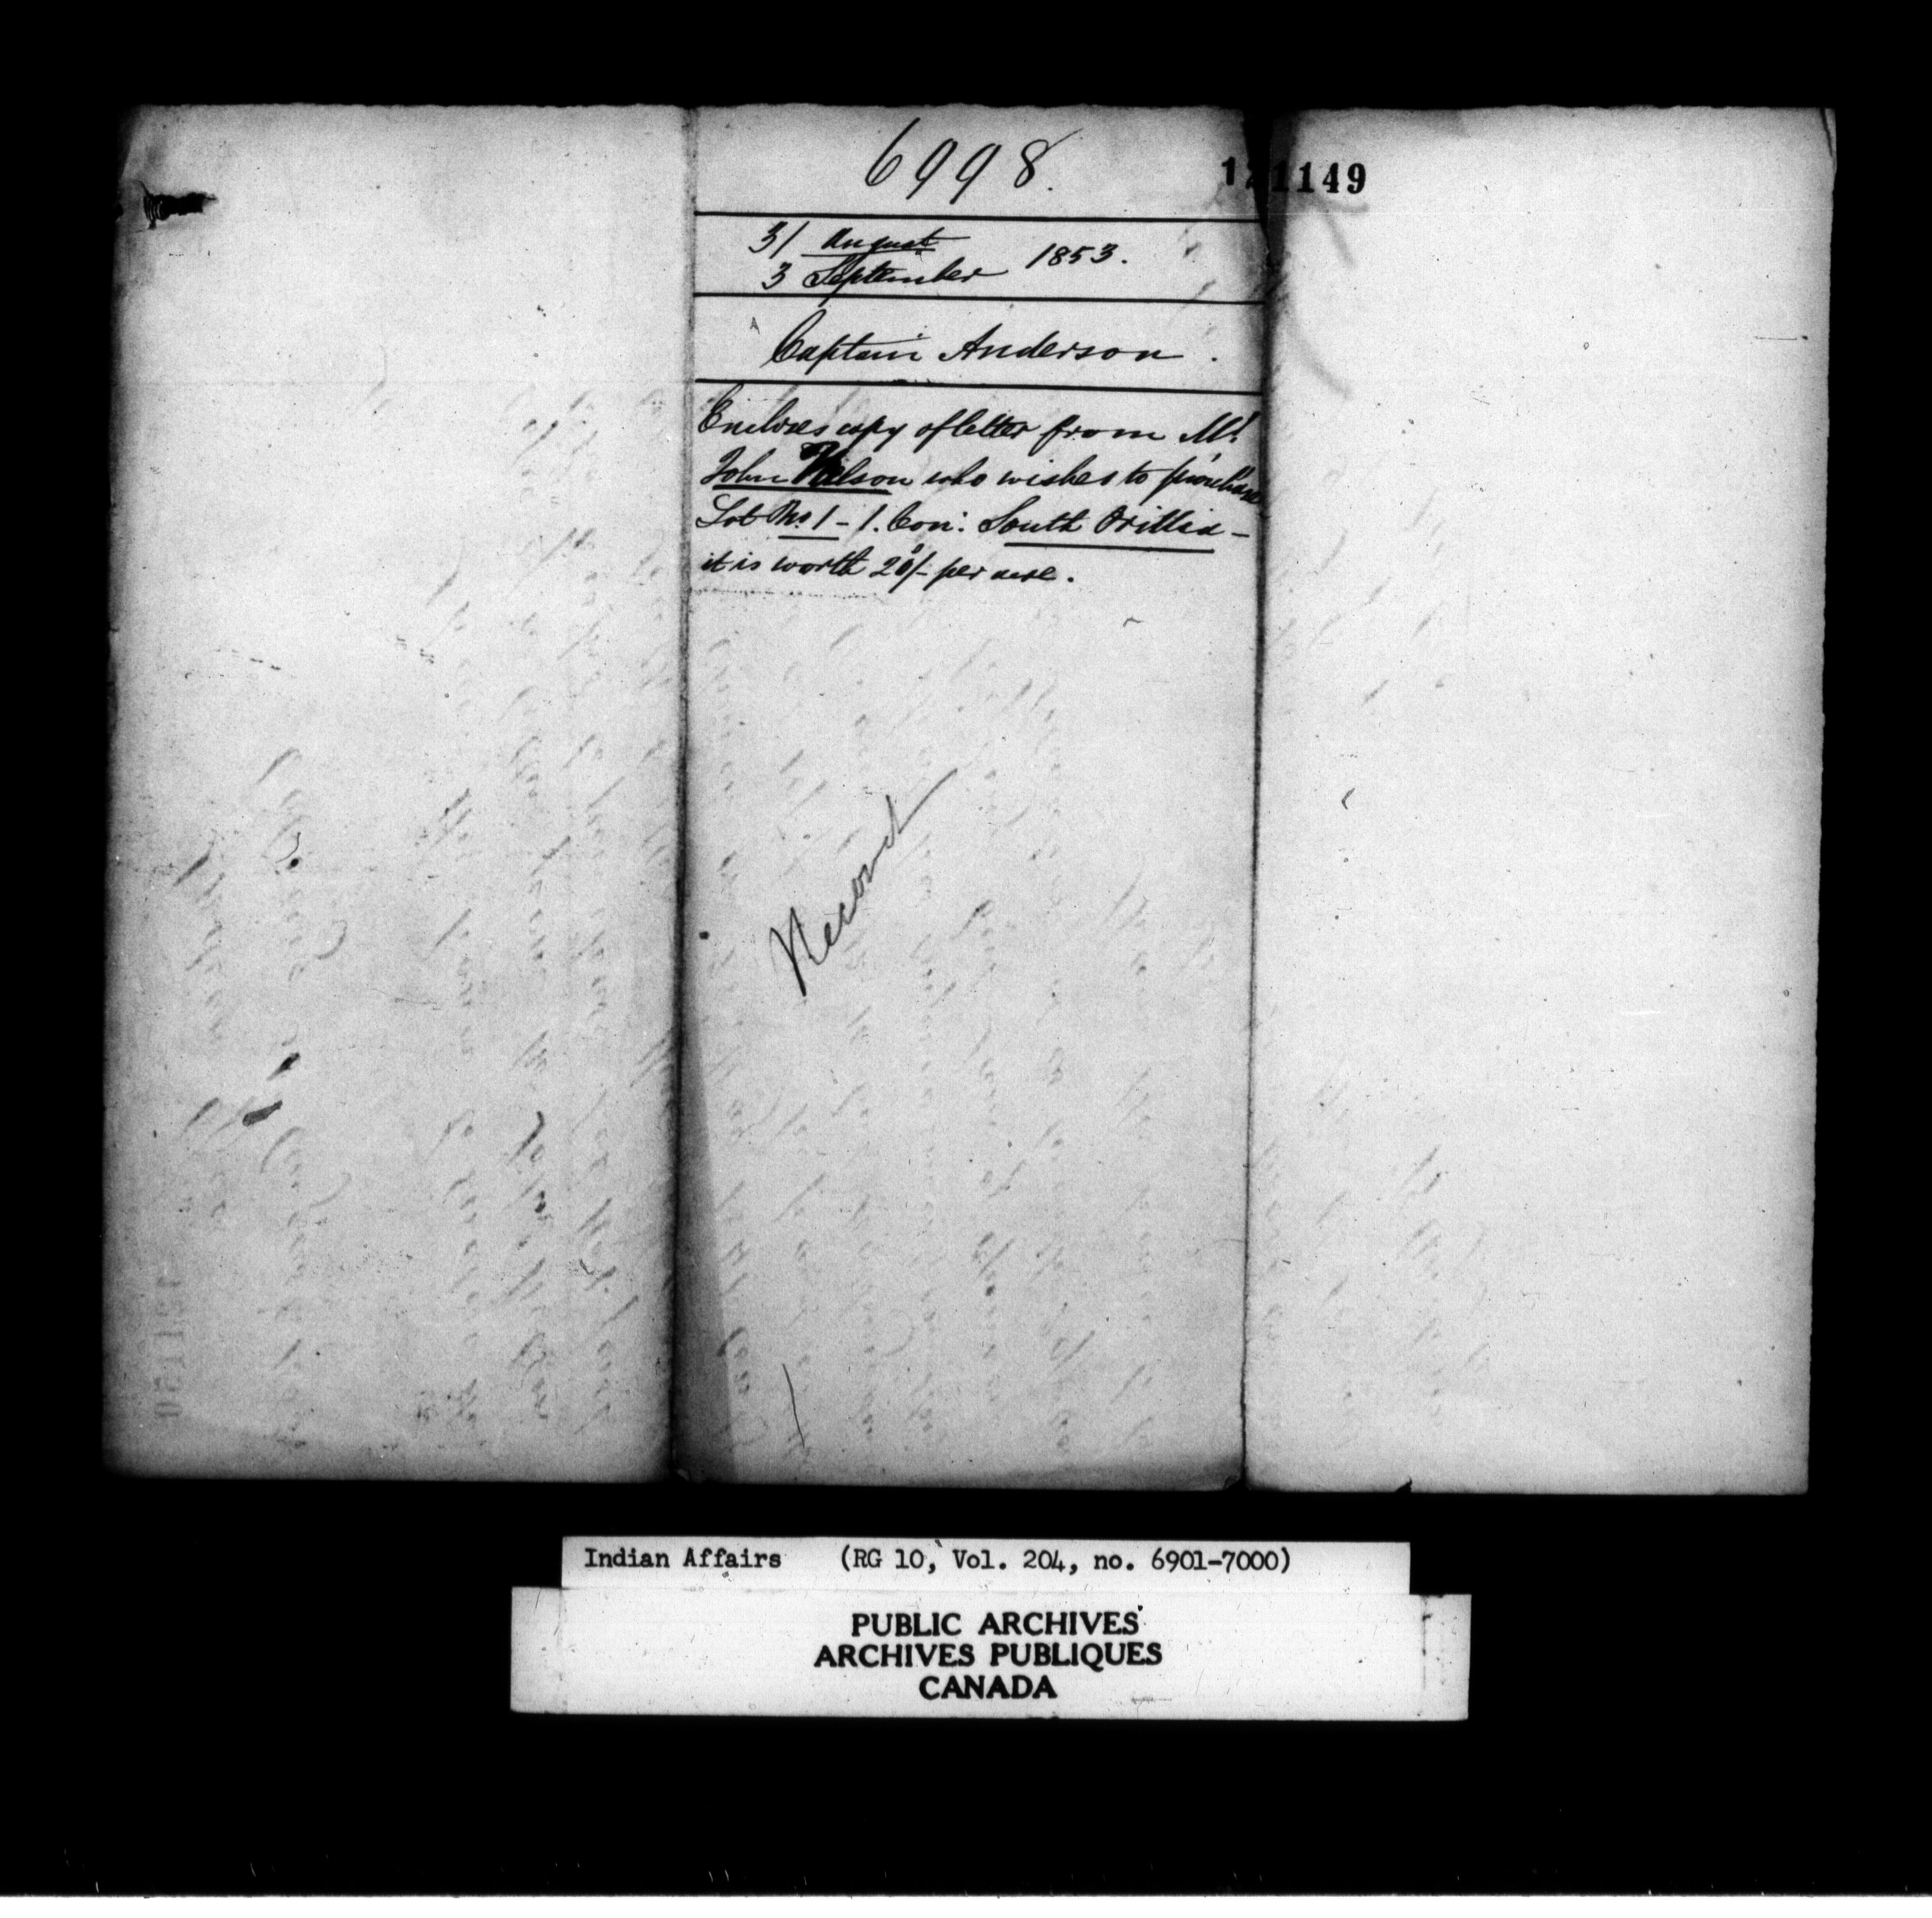 6998.
121149
31 August
3 September 1853.
Captain Anderson.
Encloses copy of letter from Mr
John Nelson who wishes to purchase
Lot No 1 - 1. Con: South Orillia -
it is worth 20/- per acre.
Record
Indian Affairs (RG 10, Vol. 204, no. 6901-7000)
PUBLIC ARCHIVES
ARCHIVES PUBLIQUES
CANADA